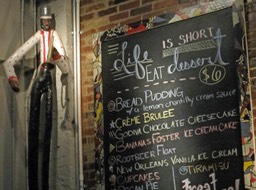 Life IS SHORT
EAT dessert $6
BREAD PUDDING
w/ a lemon chantilly cream sauce
CRÈME BRULEE
GODIVA CHOCOLATE CHEESECAKE
BANANAS FOSTER ICE CREAM CAKE
ROOTBEER FLOAT
NEW ORLEANS VANILLA ICE CREAM
CUPCAKES @TIRAMISU
PIE